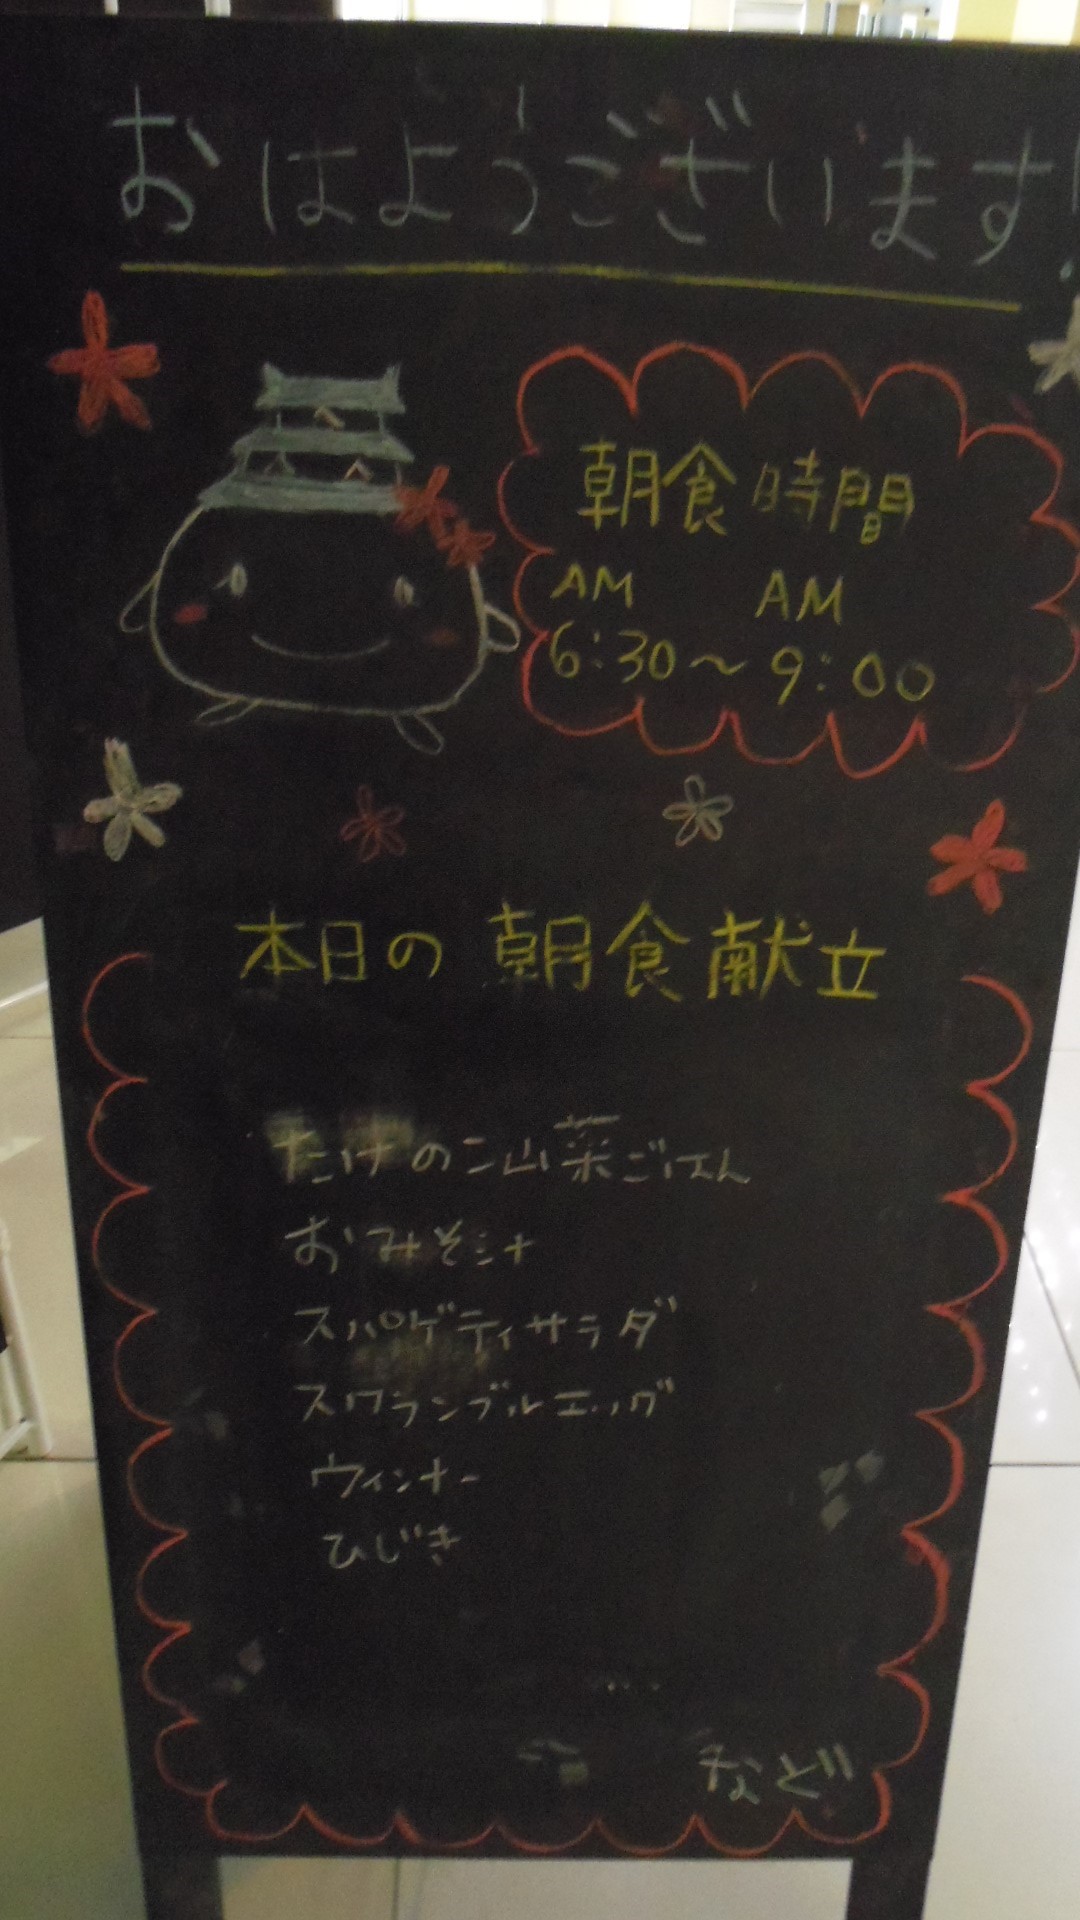 おはようございます!
朝食時間
AM AM
6:30〜9:00
本日の朝食献立
たけのこ山菜ごはん
おみそ汁
スパゲティサラダ
スクランブルエッグ
ウィンナー
ひじき
....
など